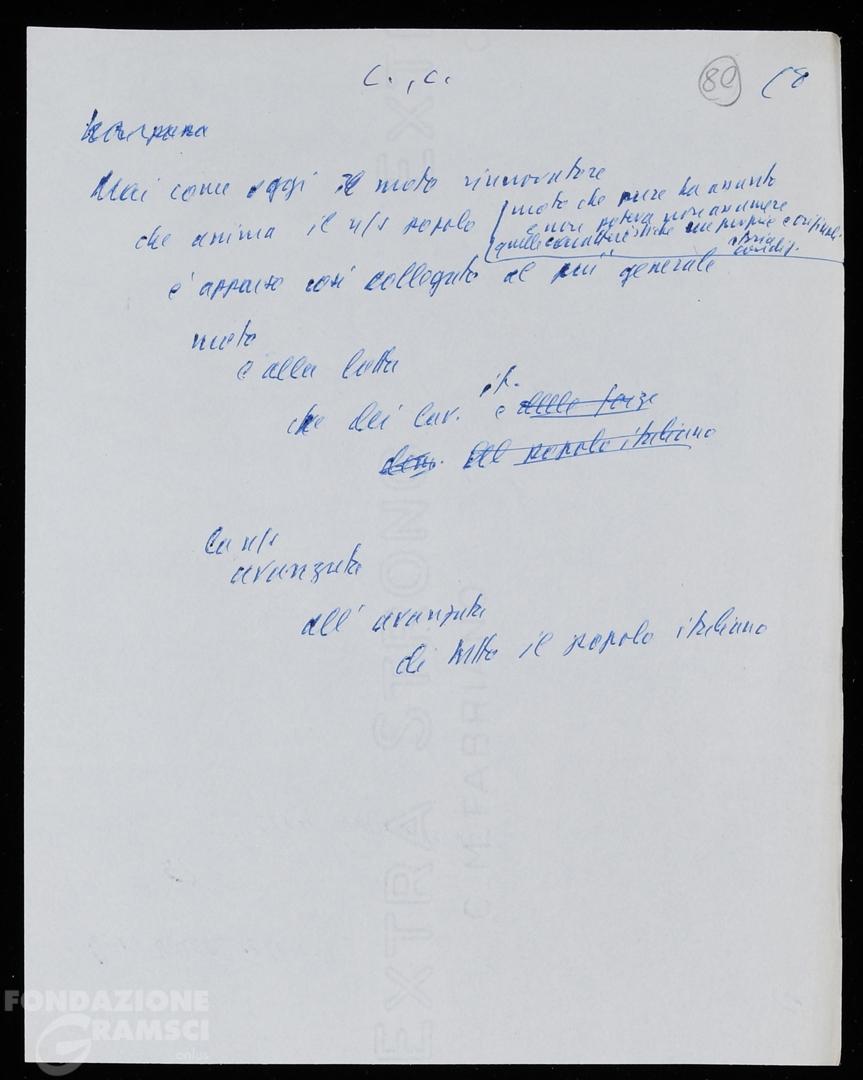 C., C.
80 (8
Mai come oggi il moto rinnovatore
che anima il n/s popolo (moto che pure ha assunto
e non poteva non assumere
quelle caratteristiche sue proprie e
storia
condiz.
è apparso così collegato al più generale
moto
e alla lotta
che dei lav. it. e delle forze
dem. del popolo italiano
La n/s
avanzata
all' avanzata
di tutto il popolo italiano
EXTRA STRONG EXT
C.M. FABRIANO
FONDAZIONE
GRAMSCI
onlus